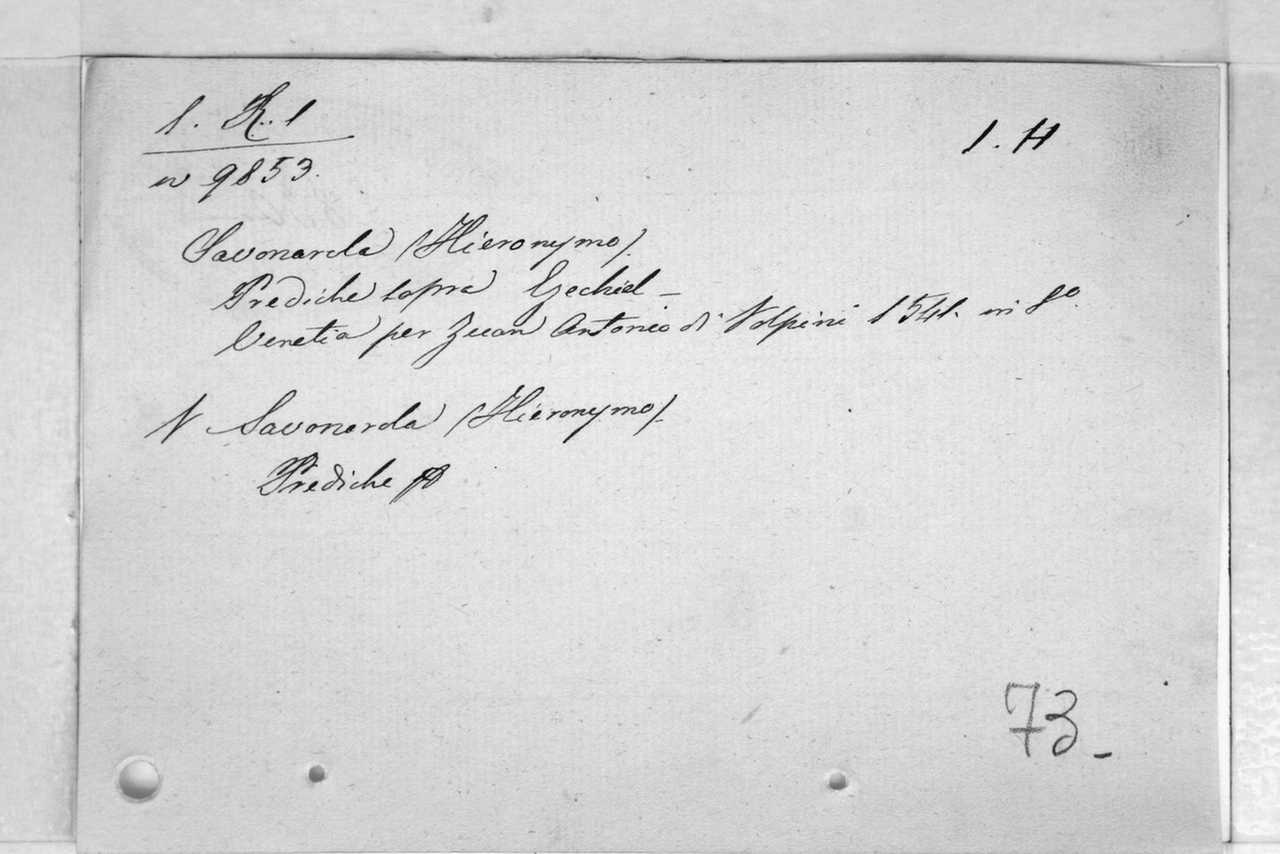 1. R. 1
1. H
n 9853.
Savonarola (Hieronymo).
Prediche sopra Ezechiel –
Venetia per Zuan Antonio di Volpini 1541. in 8º.
Savonarola (Hieronymo).
Prediche
73 –